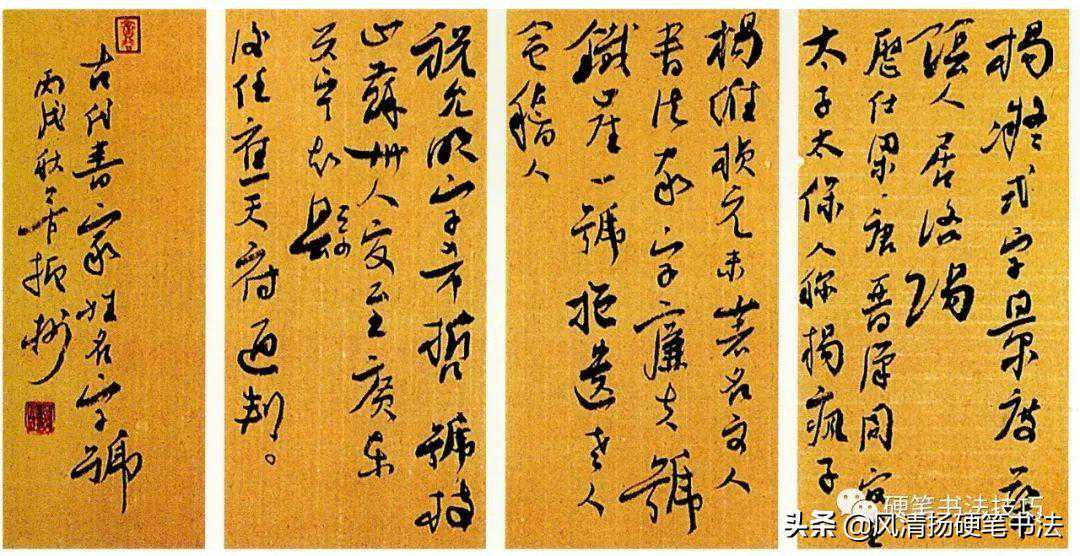 楊凝式字景度華
陰人居洛陽
歷仕梁唐晉漢周官至
太子太保人称楊瘋子
楊維楨元末著名文人
書法家字廉夫號
鐵崖一號抱遺老人
會稽人
祝允明字希哲號枝
山蘇州人官至廣東
興宁知縣
後任應天府通判。
古代書家姓名字號
丙戌秋振
硬笔书法技巧
头条 @风清扬硬笔书法